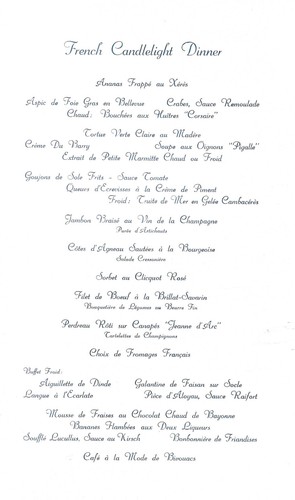 French Candlelight Dinner
Ananas Frappé au Xérès
Aspic de Foie Gras en Bellevue Crabes, Sauce Remoulade
Chaud: Bouchées aux Huîtres "Corsaire"
Tortue Verte Claire au Madère
Crème Du Barry Soupe aux Oignons "Pigalle"
Extrait de Petite Marmitte Chaud ou Froid
Goujons de Sole Frits - Sauce Tomate
Queues d'Ecrevisses à la Crème de Piment
Froid: Truite de Mer en Gelée Cambacérès
Jambon Braisé au Vin de la Champagne
Purée d'Artichauts
Côtes d'Agneau Sautées à la Bourgeoise
Salade Cressonière
Sorbet au Clicquot Rosé
Filet de Boeuf à la Brillat-Savarin
Bouquetière de Légumes au Beurre Fin
Perdreau Rôti sur Canapés "Jeanne d'Arc"
Tartelettes de Champignons
Choix de Fromages Français
Buffet Froid:
Aiguillette de Dinde Galantine de Faisan sur Socle
Langue à l'Ecarlate Pièce d'Aloyau, Sauce Raifort
Mousse de Fraises au Chocolat Chaud de Bayonne
Bananes Flambées aux Deux Liqueurs
Soufflé Lucullus, Sauce au Kirsch Bonbonnière de Friandises
Café à la Mode de Bivouacs